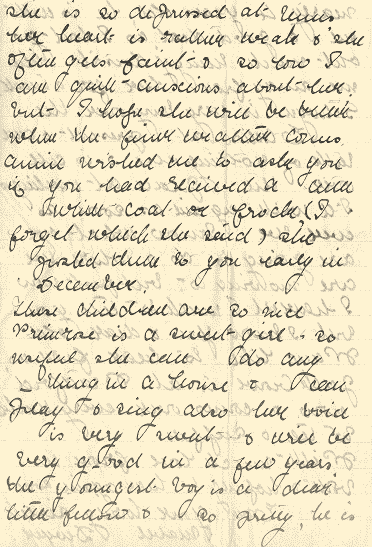 she is so depressed at times
her heart is rather weak & she
often gets faint & so low I
am quite anxious about her
but I hope she will be better
when the finer weather comes
annie wished me to ask you
if you had received a
white coat or frock (I
forget which she said) she
posted them to you early in
December.
These children are so nice
Primrose is a sweet girl so
useful she can do any
thing in a house & can
play & sing also her voice
is very sweet & will be
very good in a few years,
the youngest boy is a dear
little fellow & so pretty, he is